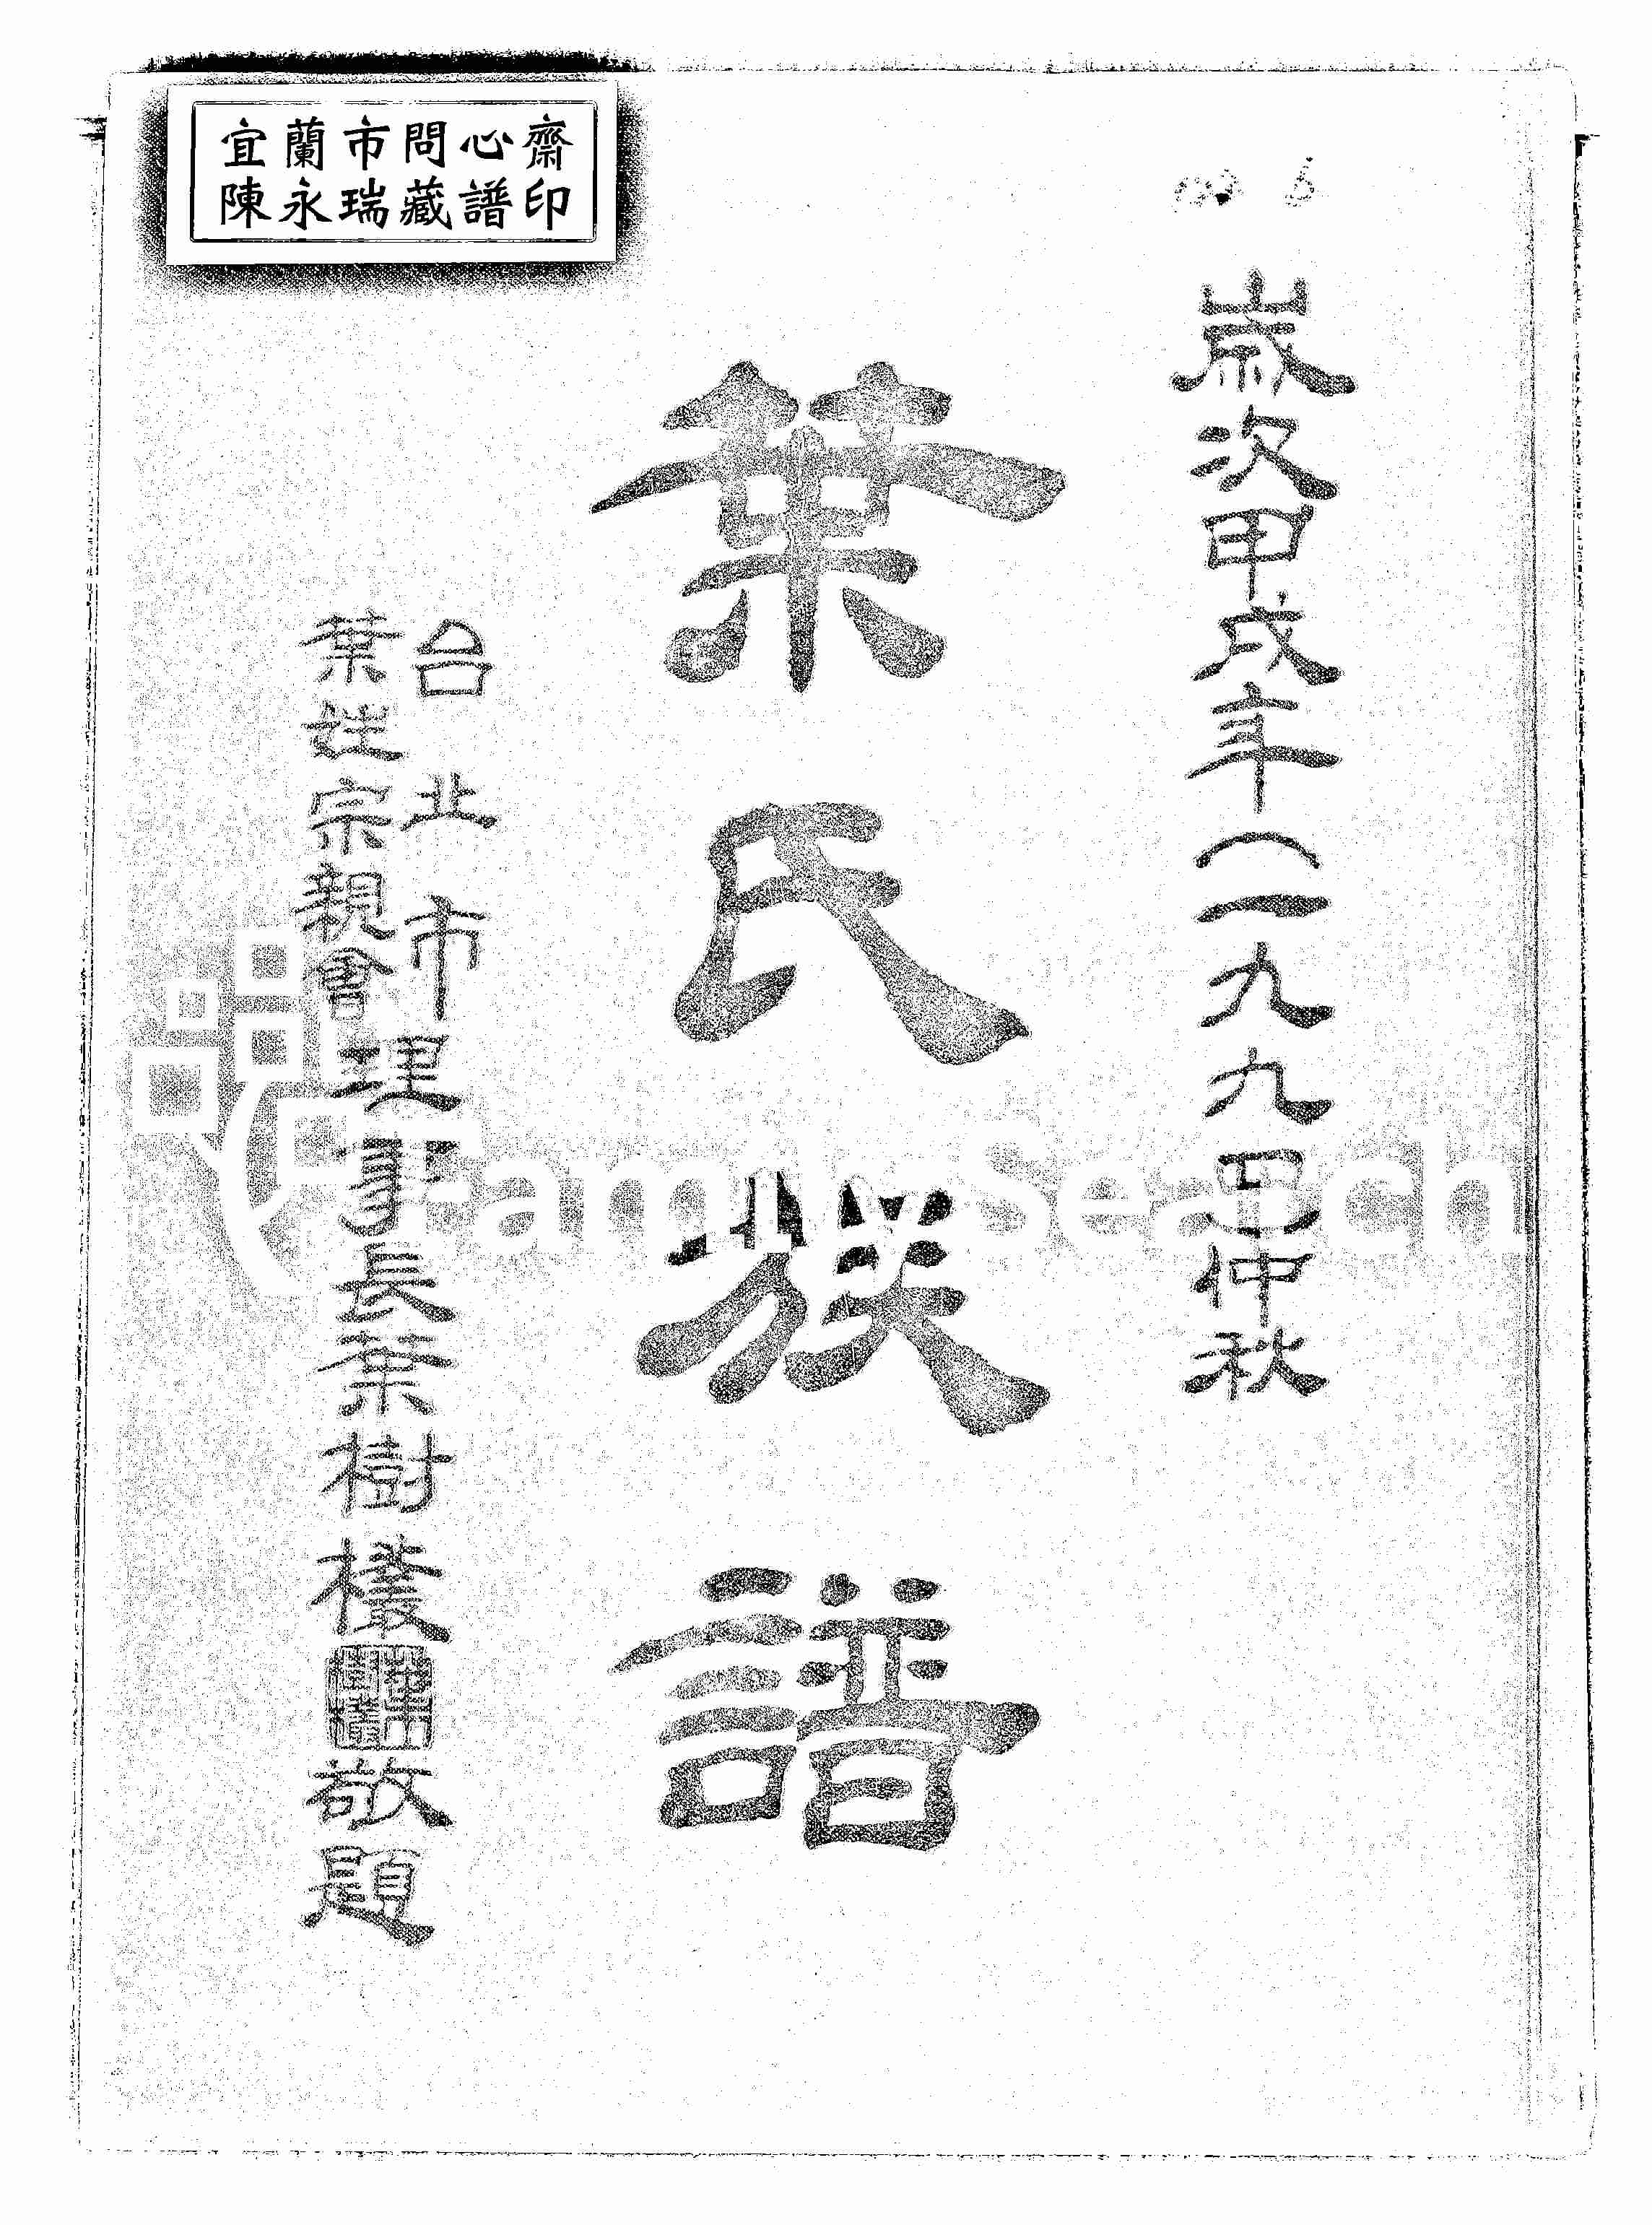 宜蘭市問心齋
陳永瑞藏譜印
歲次甲戌年(一九九四)仲秋
葉氏族譜
台北市
葉姓宗親會
理事長葉樹欉敬題
FamilySearch